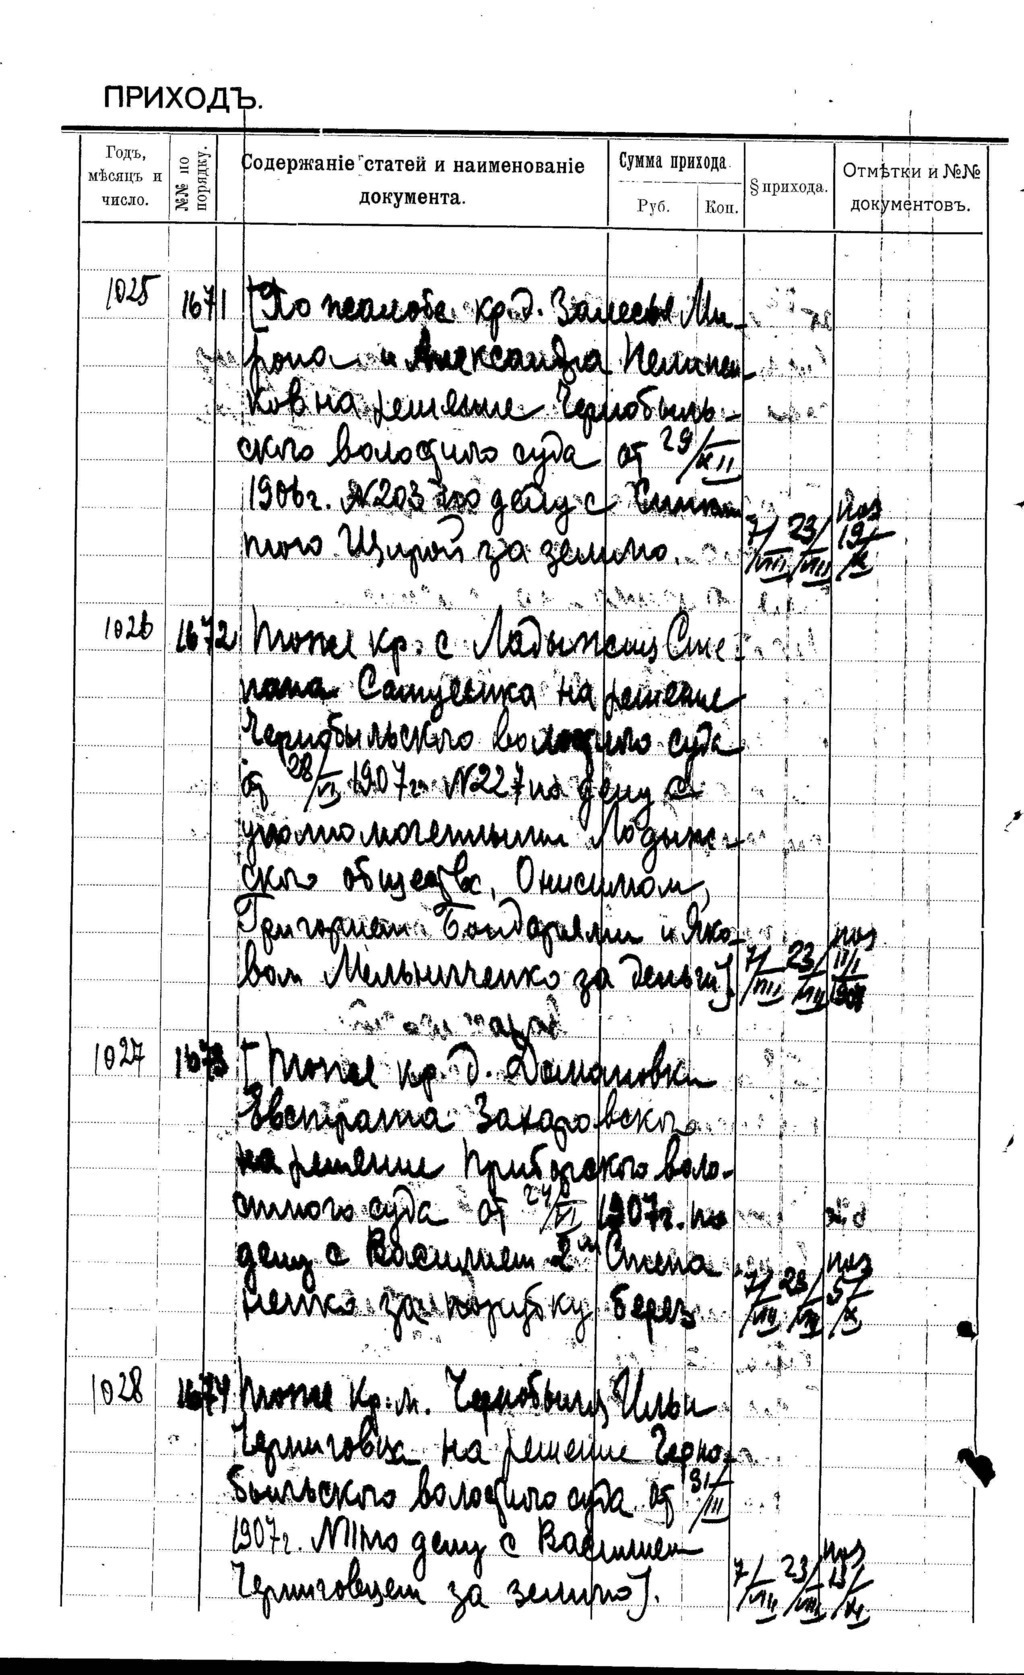 ПРИХОДЪ.
Годъ, мѣсяцъ и число.
№№ по порядку.
Содержаніе статей и наименованіе документа.
Сумма прихода.
Руб. Коп.
§ прихода.
Отмѣтки и №№ документовъ.
1025 1671 [По жалобе кр. д. Залесья Ми-
рона и Александра
ков на решение Чернобыль-
ского волостного суда от 29/XII
1906 г. № 203 по делу с
за землю.
7/VIII 23/VIII
19/IX
1026 1672 тоже кр. с Ладыжич Сте-
пана на решение
Чернобыльского волостного суда
от 28/ 1907 г. № 227 по делу с
уполномоченными Ладыж-
ского общества, Онисимом,
Григорием Бондарями и Яко-
вом Мельниченко за деньги].
7/VIII 23/VII
II/I
1908
1027 1673 [тоже кр. д. Домановки
Евстрата Захаровского
на решение Приборского воло-
стного суда от 24/VI 1907 г. по
делу с Василием Степа
ненко за порубку берез
7/VII 23/VII
5/X
1028 1674 тоже кр. м. Чернобыля Ильи
Черниговца на решение Черно-
быльского волостного суда от 31/III
1907 г. по делу с Василием
Черниговцем за землю].
7/VII 23/VIII
13/XI